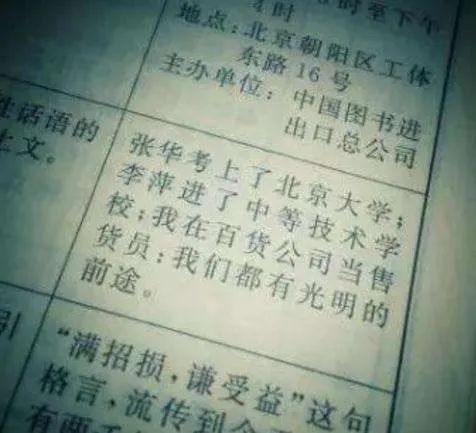 时至下午
时
地点：北京朝阳区工体
东路16号
主办单位：中国图书进
出口总公司
性话语的
上文。
张华考上了北京大学；
李萍进了中等技术学
校；我在百货公司当售
货员：我们都有光明的
前途。
引
“满招损，谦受益”这句
格言，流传到今
有两千